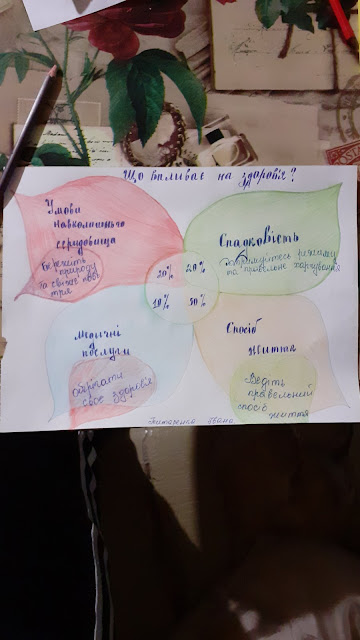 Що впливає на здоров'я?
Умови
навколишнього
середовища
Бережіть
природу
та свіже пові
тря
20%
Спадковість
Дотримуйтесь режиму
та правельне харчування
20%
Медичні
послуги
зберігати
своє здоров'я
10%
Спосіб
життя
Ведіть
правельний
спосіб
життя
50%